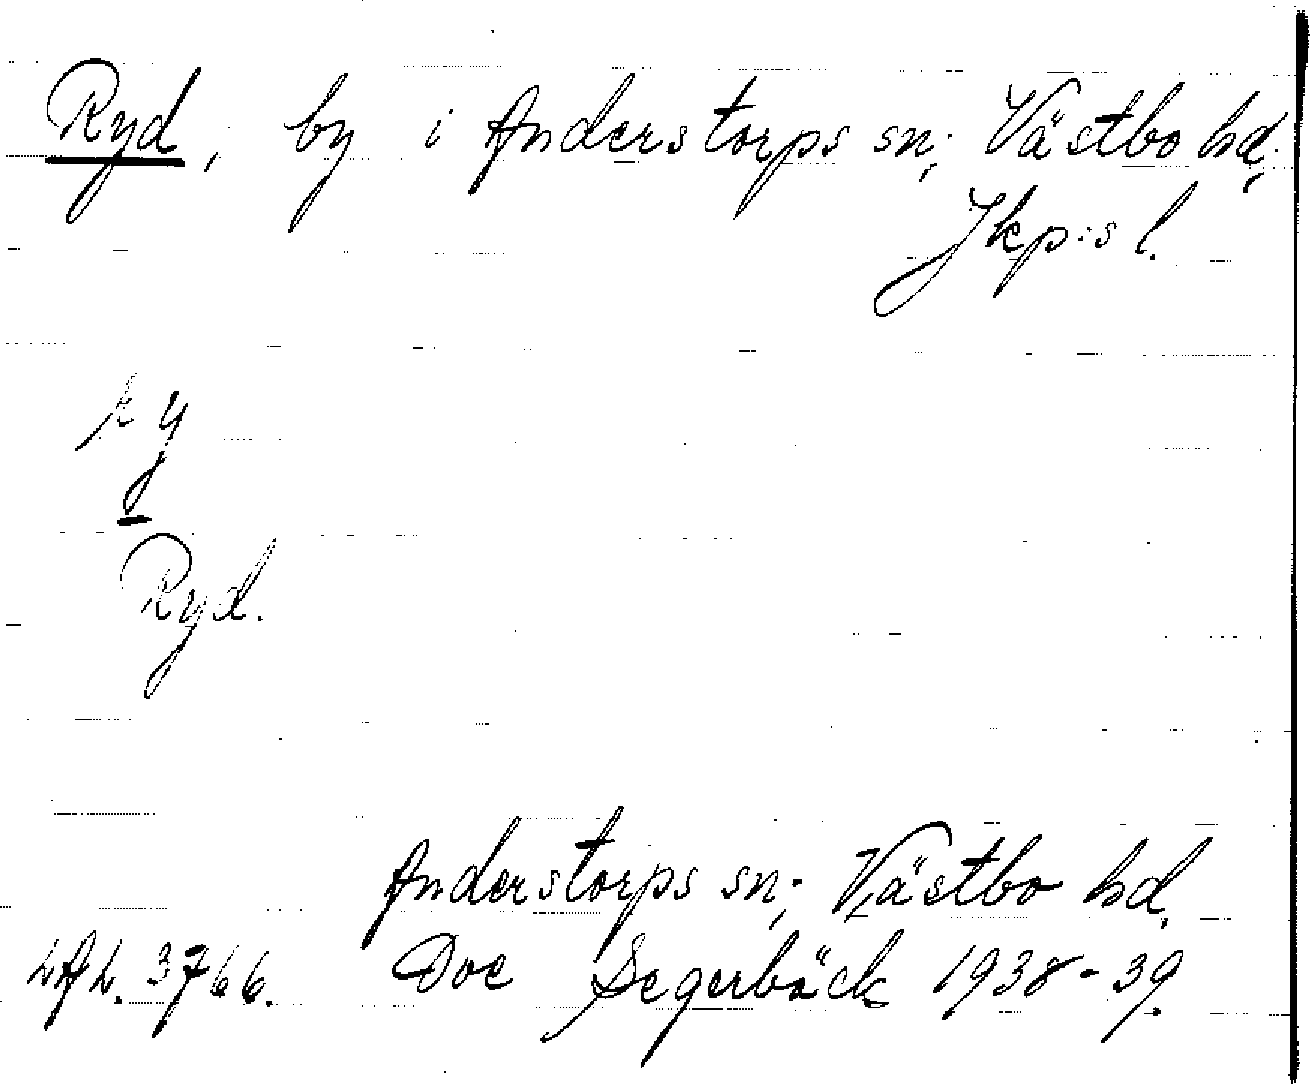 Ryd, by i Anderstorps sn; Västbo hd;
Jkp:s l.
ry
Ryd.
Anderstorps sn; Västbo hd,
LAL. 3766. Doc Segerbäck 1938-39.